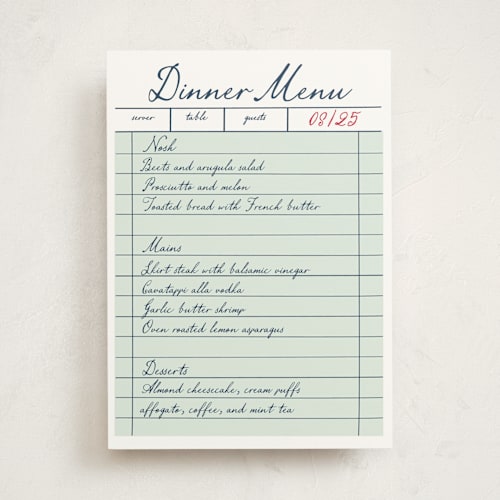 Dinner Menu
server table guests 08/25
Nosh
Beets and arugula salad
Prosciutto and melon
Toasted bread with French butter
Mains
Skirt steak with balsamic vinegar
Cavatappi alla vodka
Garlic butter shrimp
Oven roasted lemon asparagus
Desserts
Almond cheesecake, cream puffs
affogato, coffee, and mint tea